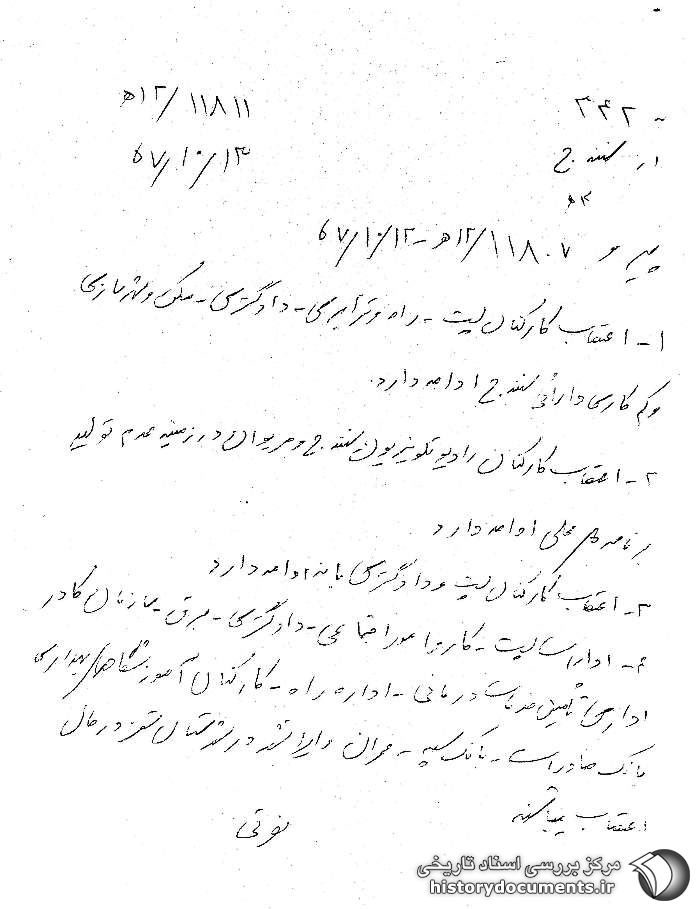 ۳۴۲ ۱۲ﻫ/۱۱۸۱۱
از سنندج ۵۷/۱۰/۱۳
پیرو ۱۲ﻫ/۱۱۸۰۷-۵۷/۱۰/۱۲
۱- اعتصاب کارکنان پست - راه و ترابری - دادگستری - مسکن و شهرسازی
و کم کاری دارائی سنندج ادامه دارد.
۲- اعتصاب کارکنان رادیو تلویزیون سنندج و مریوان در زمینه عدم تولید
برنامه های محلی ادامه دارد
۳- اعتصاب کارکنان پست و دادگستری بانه ادامه دارد
۴- ادارات پست - کار و امور اجتماعی - دادگستری - برق - سازمان کادر
اداری تأمین خدمات درمانی - اداره راه - کارکنان آموزشگاه بهداری
بانک صادرات - بانک سپه - عمران در شهرستان سقز در حال
اعتصاب میباشند
مرکز بررسی اسناد تاریخی
historydocuments.ir